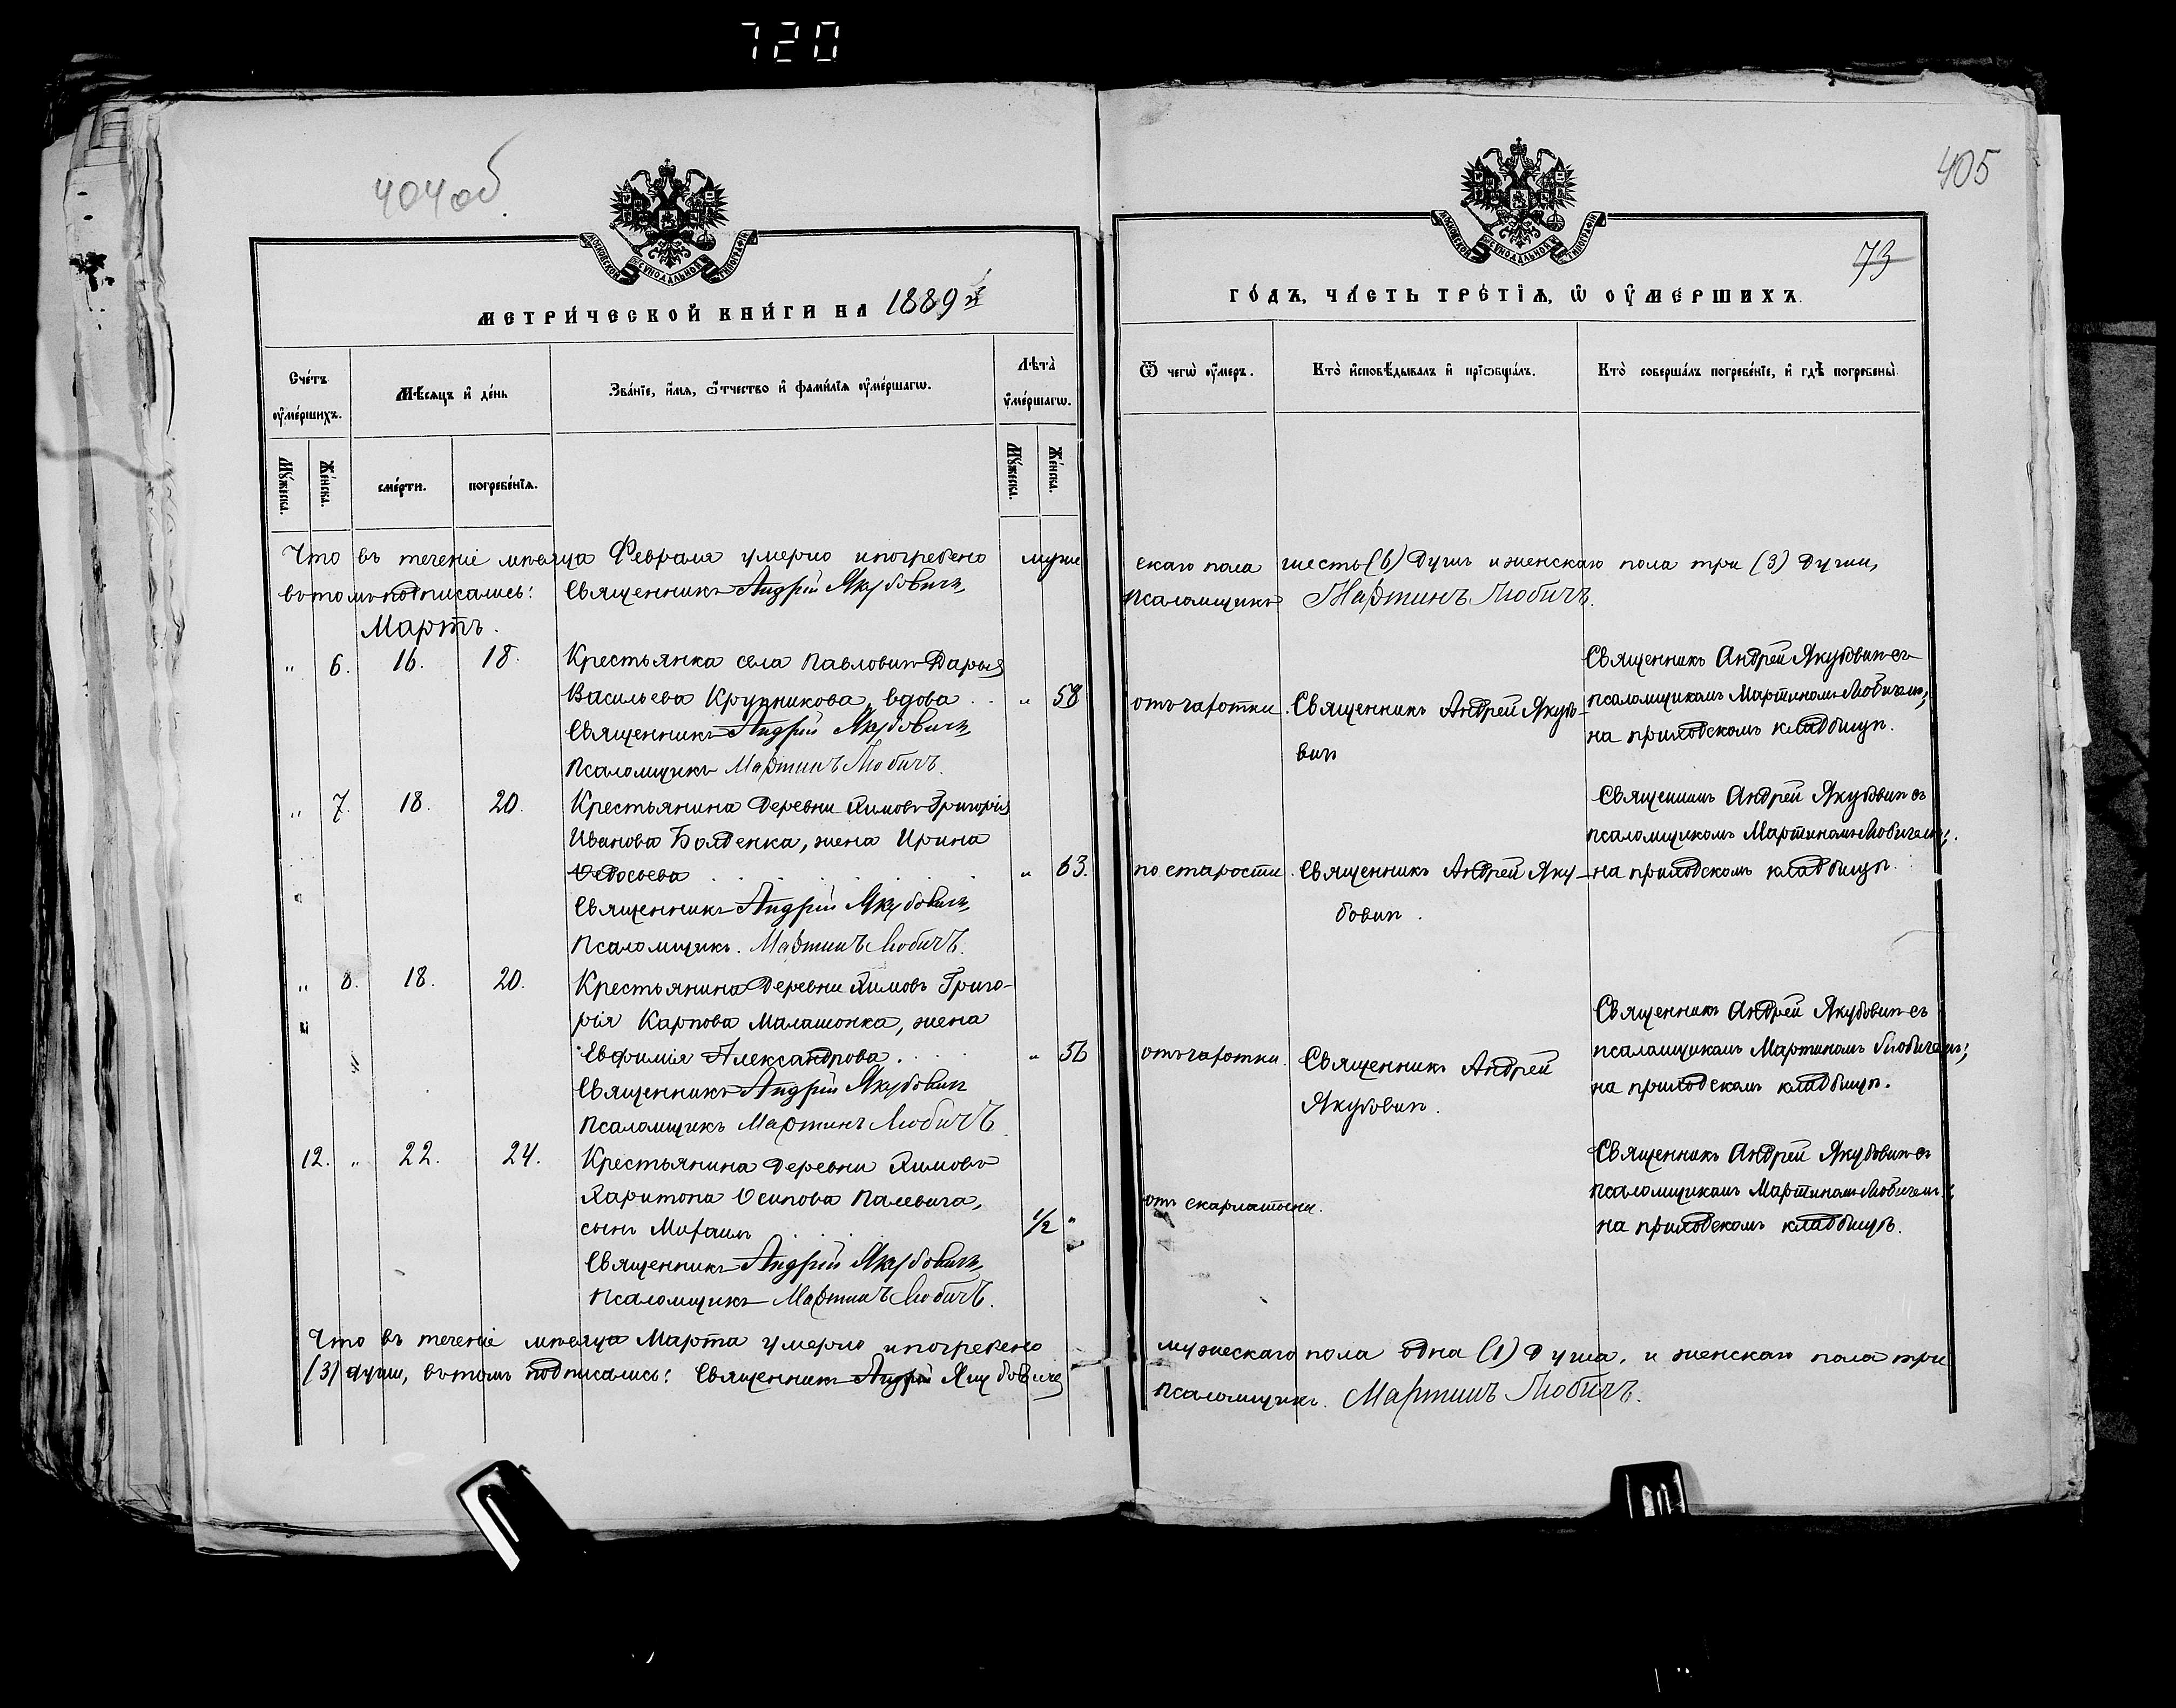 720
404об.
405
73
МОСКОВСКОЙ СѴНОДАЛЬНОЙ ТИПОГРАФІИ
МОСКОВСКОЙ СѴНОДАЛЬНОЙ ТИПОГРАФІИ
МЕТРИ́ЧЕСКОЙ КНИ́ГИ НА 1889й
ГО́ДЪ, ЧА́СТЬ ТРЕ́ТІѦ, Ѡ ОУ҆МЕ́РШИХЪ.
Сче́тъ оу҆ме́ршихъ.
Мѣ́сяцъ и҆ де́нь
Зва́нїе, и҆́мѧ, ѻ҆́тчество и҆ фами́лїѧ оу҆ме́ршагѡ.
Лѣ́та оу҆ме́ршагѡ.
Ѿ чегѡ̀ оу҆́меръ.
Кто̀ и҆сповѣ́дывалъ и҆ прїѡбща́лъ.
Кто̀ соверша́лъ погребе́нїе, и҆ гдѣ̀ погребены̀.
Мꙋ́жеска.
Же́нска.
сме́рти.
погребе́нїѧ.
Мꙋ́жеска.
Же́нска.
Что въ теченіе мѣсяца Февраля умерло и погребено мужескаго пола шесть (6) душъ и женскаго пола три (3) души,
въ томъ подписались: Священникъ Андрей Якубовичъ, Псаломщикъ Мартинъ Любичъ.
Мартъ.
" 6. 16. 18. Крестьянка села Павловичъ Дарья
Васильева Крупникова, вдова . . " 58
Священникъ Андрей Якубовичъ,
Псаломщикъ Мартинъ Любичъ.
отъ чахотки.
Священникъ Андрей Якубо-
вичъ
Священникъ Андрей Якубовичъ съ
псаломщикомъ Мартиномъ Любичемъ;
на приходскомъ кладбищѣ.
" 7. 18. 20. Крестьянина деревни Химовъ Григорія
Иванова Болденка, жена Ирина
Ѳедосьева . . . . . " 63.
Священникъ Андрей Якубовичъ,
Псаломщикъ. Мартинъ Любичъ.
по старости.
Священникъ Андрей Яку-
бовичъ.
Священникъ Андрей Якубовичъ съ
псаломщикомъ Мартиномъ Любичемъ;
на приходскомъ кладбищѣ.
" 8. 18. 20. Крестьянина деревни Химовъ Григо-
рія Карпова Малашонка, жена
Евфимія Александрова . . . " 56
Священникъ Андрей Якубовичъ
Псаломщикъ Мартинъ Любичъ
отъ чахотки.
Священникъ Андрей
Якубовичъ.
Священникъ Андрей Якубовичъ съ
псаломщикомъ Мартиномъ Любичемъ;
на приходскомъ кладбищѣ.
12. " 22. 24. Крестьянина деревни Химовъ
Харитона Осипова Палевича,
сынъ Михаилъ . . . 1/2 "
Священникъ Андрей Якубовичъ,
Псаломщикъ Мартинъ Любичъ.
отъ скарлатины.
Священникъ Андрей Якубовичъ съ
псаломщикомъ Мартиномъ Любичемъ;
на приходскомъ кладбищѣ.
Что въ теченіе мѣсяца Марта умерло и погребено мужескаго пола одна (1) душа, и женскаго пола три
(3) души, въ томъ подписались: Священникъ Андрей Якубовичъ Псаломщикъ. Мартинъ Любичъ.